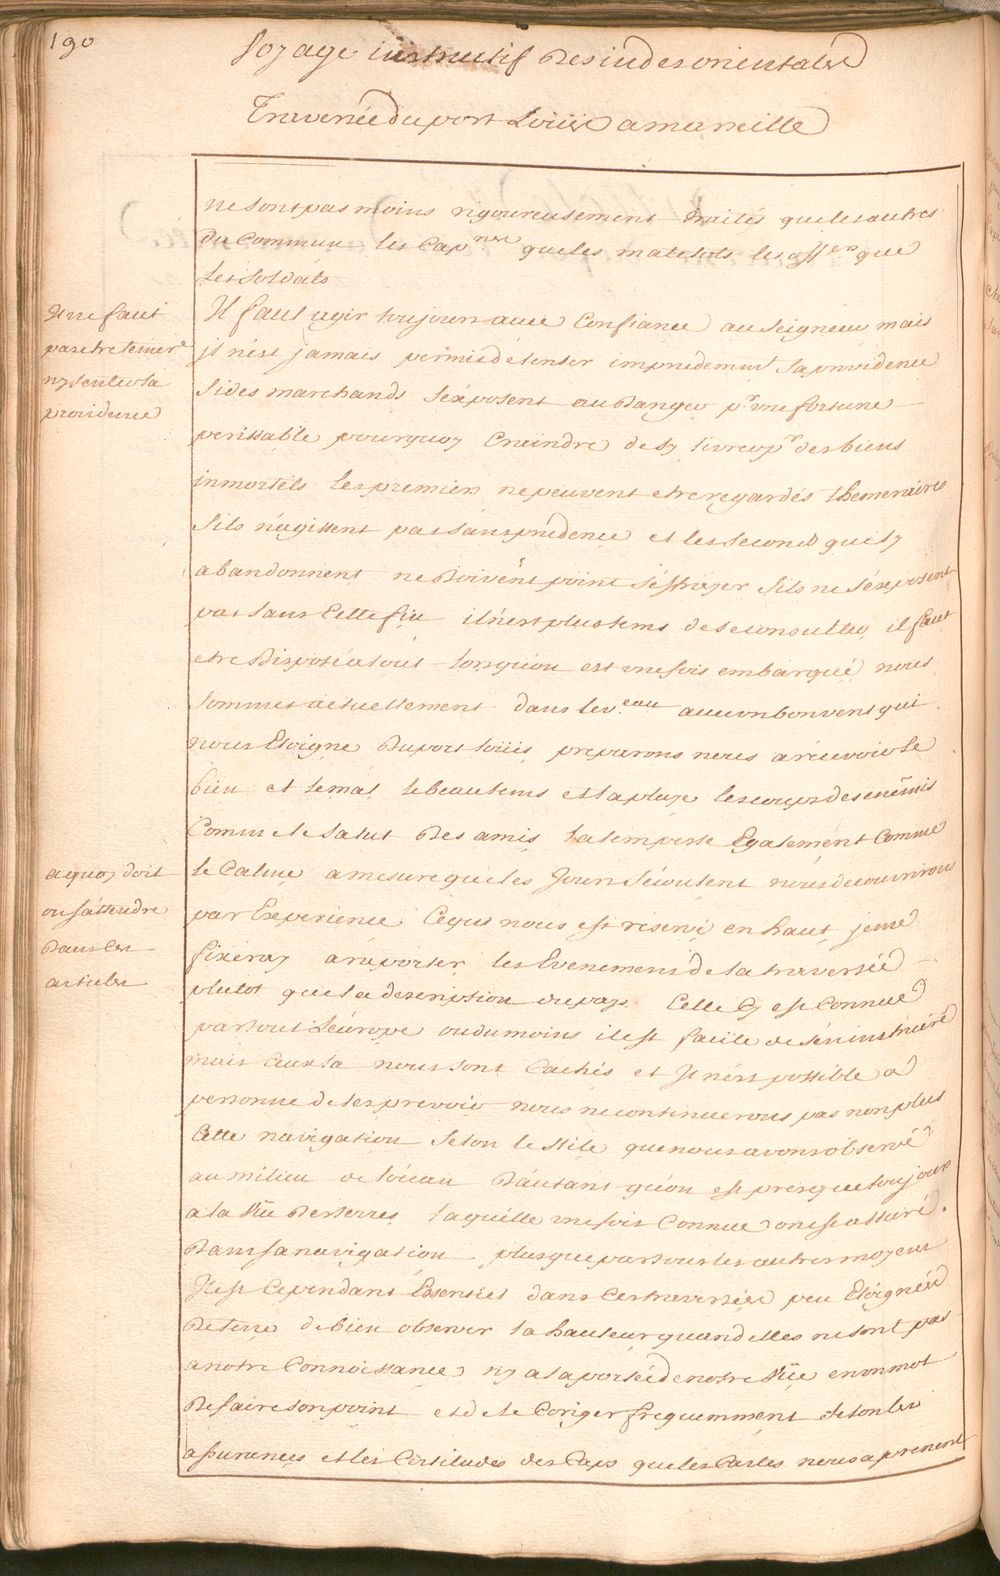 190
Voyage instructif des indes orientales
Traversée du port Loüis a marseille
ne sont pas moins rigoureusement traités que les autres
du Commun les Cap.nes que les matelots les off.ers que
les soldats
Il ne faut
pas etre temer.e
ny tenter la
providence
Il faut agir toujours avec Confiance au seigneur mais
jl n'est jamais permis de tenter imprudemm.t sa providence
si des marchands s'exposent au danger p.r une fortune
perissable pourquoy Craindre de s'y livrer p.r des biens
inmortels les premiers ne peuvent etre regardés themeraires
s'ils n'agissent pas sans prudence et les seconds qui s'y
abandonnent ne doivent point s'effrayer s'ils ne s'exposent
pas sans Cette fin il n'est plus tems de se consulter il faut
etre disposé a tout lorsqu'on est une fois embarqué nous
sommes actuellement dans le v.eau avec un bon vent qui
nous Eloigne du port loüis preparons nous a recevoir le
bien et le mal le beau tems et la pluye les coups des enémis
Comme le salut des amis la tempeste Egalement Comme
a quoy doit
on s'attendre
dans Ces
articles
le Calme a mesure que les Jours s'écoulent nous decouvrirons
par Experience Ce qui nous est reservé en haut je me
fixéray a raporter les Evenemens de la traversée
plutot que la description du pays Celle Cy est Connue
par tout l'éurope ou du moins il est facile de s'en instruire
mais Ceux la nous sont Cachés et Il n'est possible a
personne de les prevoir nous ne continuerons pas non plus
Cette navigation selon le stile que nous avons observé
au milieu de l'ocean d'autant qu'on est presque toujours
a la vüe des terres laquélle une fois Connue on est assuré
dans sa navigation plus que par tous les autres moyens
Il est Cependant Essentiel dans Ces traversées peu Eloignées
de terre de bien observer la hauteur quand elles ne sont pas
a notre Connoissance ny a la portée de notre vüe en un mot
de faire son point et de le Coriger frequemment selon les
assurances et les Certitudes des Caps que les Cartes nous aprenent